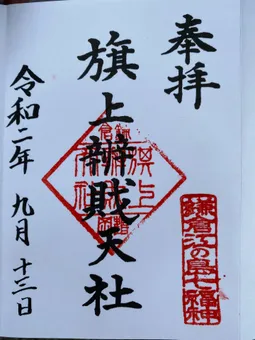 奉拝
旗上辨財天社
令和二年 九月 十三日
鎌倉江の島七福神